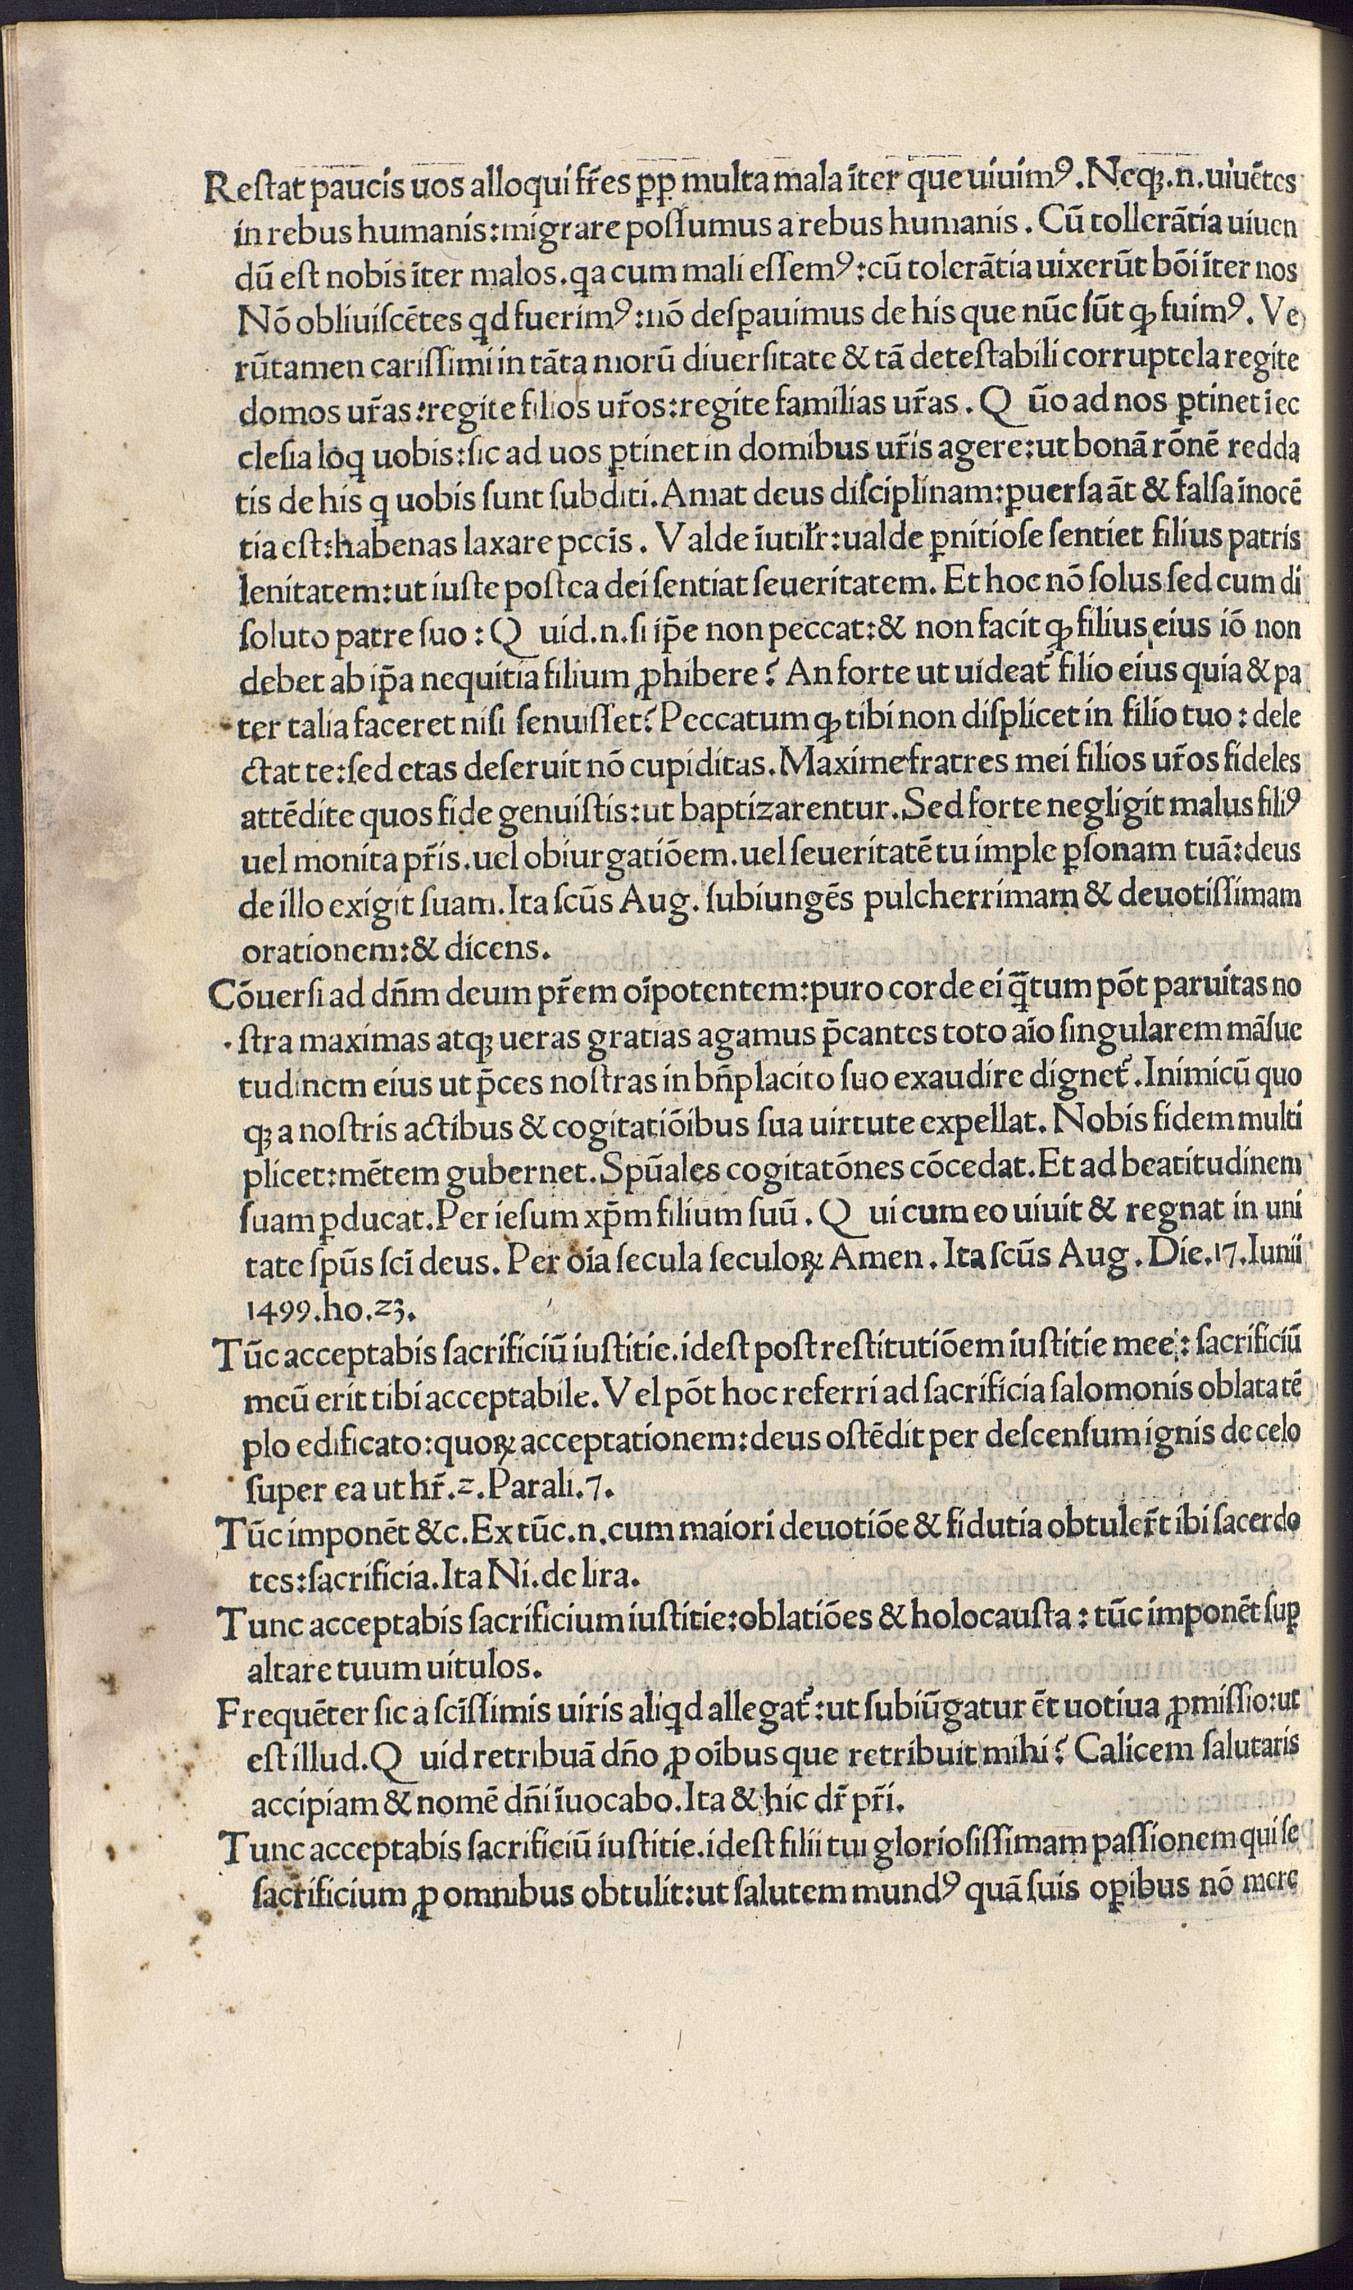 Reſtat paucis uos alloqui fr̃es ꝓꝑ multa mala ĩter que uiuimꝰ. Neqꝫ.n. uiuẽtes
in rebus humanis: migrare poſſumus a rebus humanis. Cũ tollerãtia uiuen
dũ eſt nobis ĩter malos. qa cum mali eſſemꝰ: cũ tolerãtia uixerũt bõi ĩter nos
Nõ obliuiſcẽtes qd fuerimꝰ: nõ deſꝑauimus de his que nũc ſũt ꝙ fuimꝰ. Ve
rũtamen cariſſimi in tãta morũ diuerſitate & tã deteſtabili corruptela regite
domos ur̃as: regite filios ur̃os: regite familias ur̃as. Q ũo ad nos ꝑtinet ĩ ec
cleſia loq uobis: ſic ad uos ꝑtinet in domibus ur̃is agere: ut bonã rõnẽ redda
tis de his q uobis ſunt ſubditi. Amat deus diſciplinam: ꝑuerſa ãt & falſa ĩnocẽ
tia eſt: habenas laxare pccĩs. Valde ĩutilr̃: ualde ꝑnitioſe ſentiet filius patris
lenitatem: ut iuſte poſtea dei ſentiat ſeueritatem. Et hoc nõ ſolus ſed cum di
ſoluto patre ſuo: Q uid.n. ſi ip̃e non peccat: & non facit ꝙ filius eius iõ non
debet ab ip̃a nequitia filium ꝓhibere? An forte ut uideat᷑ filio eius quia & pa
ter talia faceret niſi ſenuiſſet? Peccatum ꝙ tibi non diſplicet in filio tuo: dele
ctat te: ſed etas deſeruit nõ cupiditas. Maxime fratres mei filios ur̃os fideles
attẽdite quos fide genuiſtis: ut baptizarentur. Sed forte negligit malus filiꝰ
uel monita pr̃is. uel obiurgatiõem. uel ſeueritatẽ tu imple ꝑſonam tuã: deus
de illo exigit ſuam. Ita ſcũs Aug. ſubiungẽs pulcherrimam & deuotiſſimam
orationem: & dicens.
Cõuerſi ad dñm deum pr̃em oĩpotentem: puro corde ei q̃tum põt paruitas no
ſtra maximas atqꝫ ueras gratias agamus p̃cantes toto aĩo ſingularem mãſue
tudinem eius ut p̃ces noſtras in bñplacito ſuo exaudire dignet᷑. Inimicũ quo
qꝫ a noſtris actibus & cogitatiõibus ſua uirtute expellat. Nobis fidem multi
plicet: mẽtem gubernet. Spũales cogitatõnes cõcedat. Et ad beatitudinem
ſuam ꝑducat. Per ieſum xp̃m filium ſuũ. Q ui cum eo uiuit & regnat in uni
tate ſpũs ſcĩ deus. Per oĩa ſecula ſeculoꝝ Amen. Ita ſcũs Aug. Die.17. Iunii
1499. ho.23.
Tũc acceptabis ſacrificiũ iuſtitie. ideſt poſt reſtitutiõem iuſtitie mee: ſacrificiũ
meũ erit tibi acceptabile. Vel põt hoc referri ad ſacrificia ſalomonis oblata tẽ
plo edificato: quoꝝ acceptationem: deus oſtẽdit per deſcenſum ignis de celo
ſuper ea ut hr̃.2. Parali.7.
Tũc imponẽt &c. Ex tũc.n. cum maiori deuotiõe & fidutia obtuler̃t ibi ſacerdo
tes: ſacrificia. Ita Ni. de lira.
Tunc acceptabis ſacrificium iuſtitie: oblatiões & holocauſta: tũc imponẽt ſuꝑ
altare tuum uitulos.
Frequẽter ſic a ſcĩſſimis uiris aliqd allegat᷑: ut ſubiũgatur ẽt uotiua ꝓmiſſio: ut
eſt illud. Q uid retribuã dño ꝓ oĩbus que retribuit mihi? Calicem ſalutaris
accipiam & nomẽ dñi ĩuocabo. Ita & hic dr̃ pr̃i.
Tunc acceptabis ſacrificiũ iuſtitie. ideſt filii tui glorioſiſſimam paſſionem qui ſe
ſacrificium ꝓ omnibus obtulit: ut ſalutem mundꝰ quã ſuis oꝑibus nõ mere